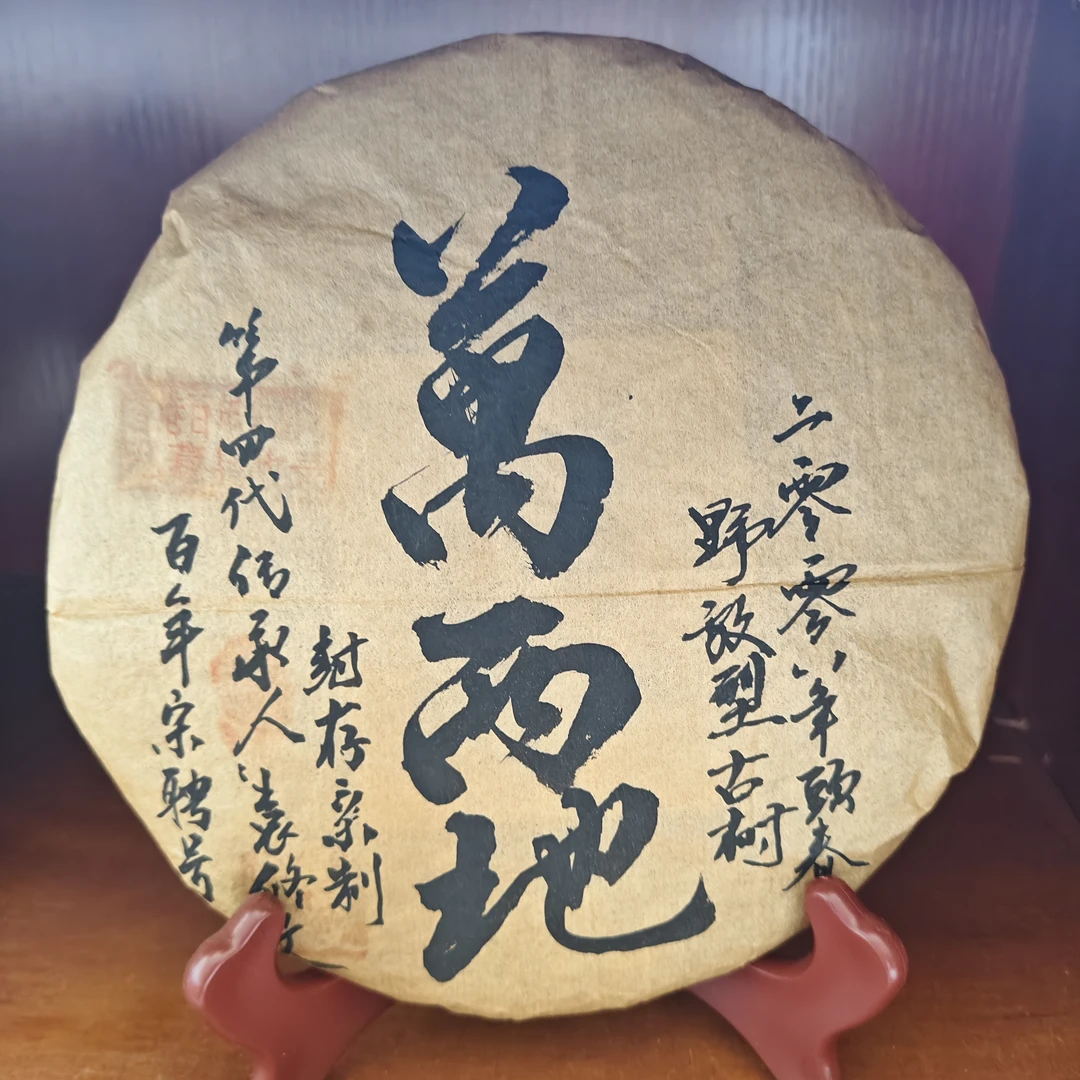 二零零八年頭春
野放型古树
萬两地
封存亲制
第四代传承人:袁修
百年宋聘号